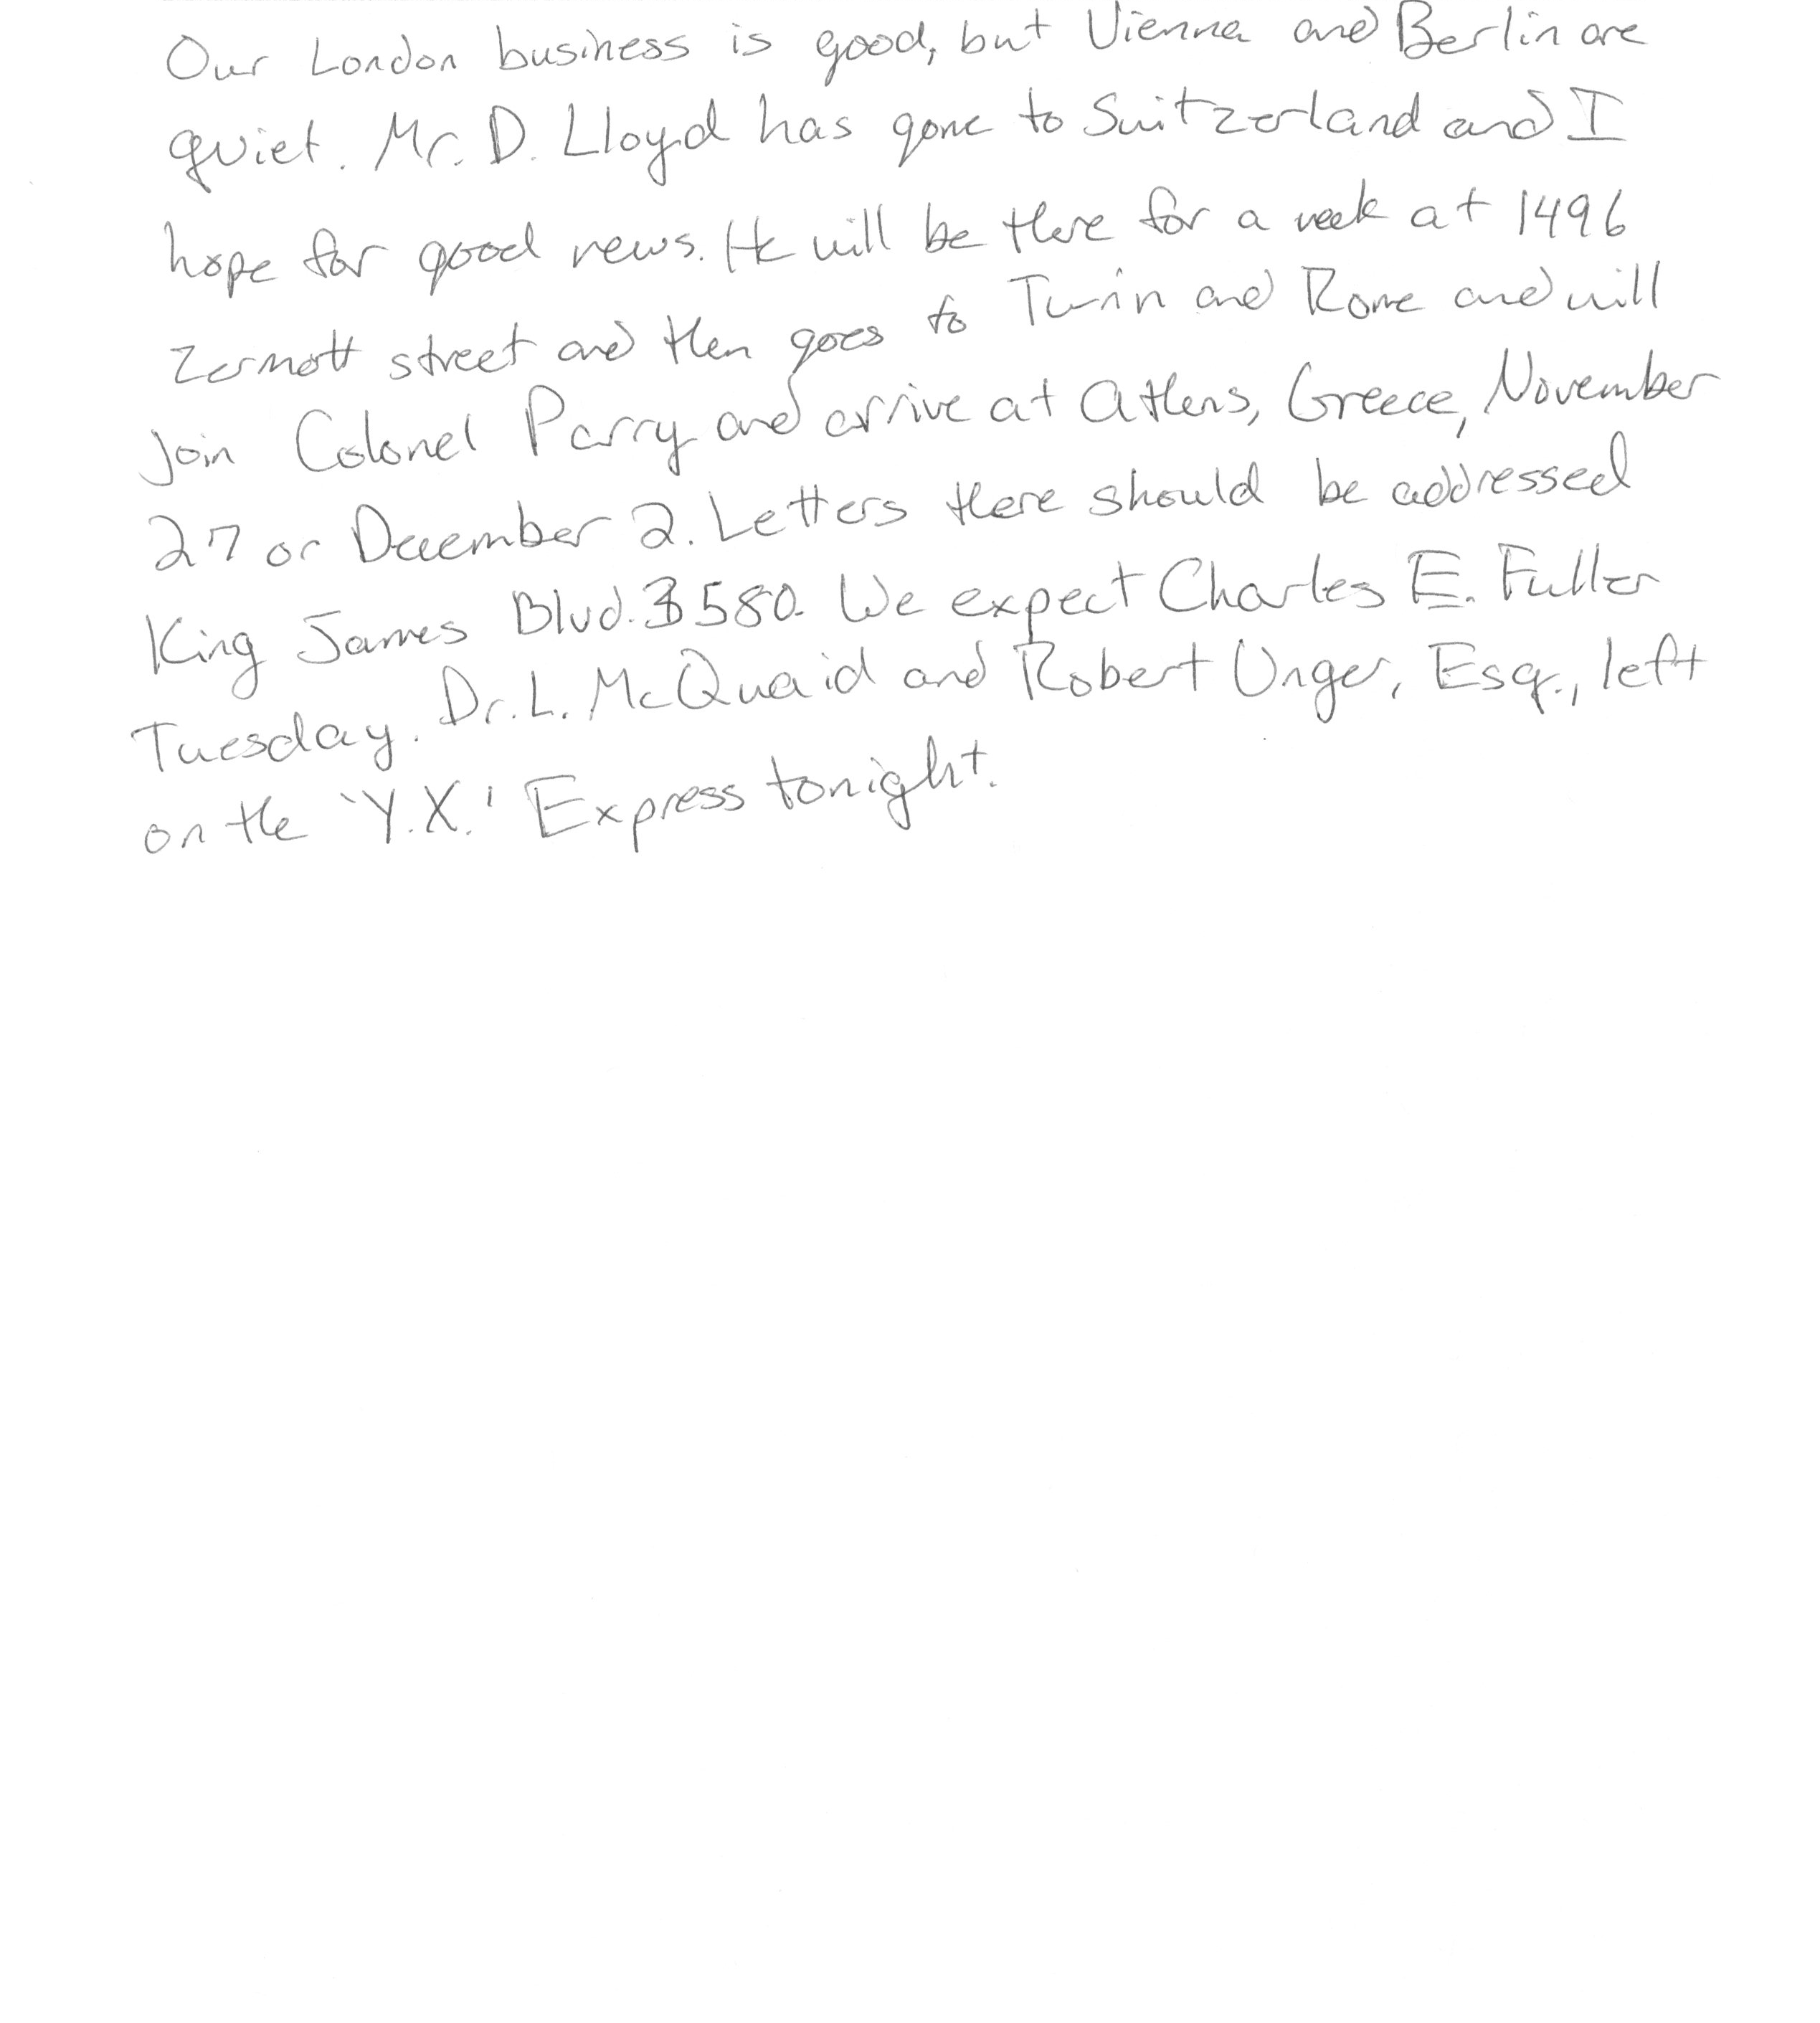 Our London business is good, but Vienna and Berlin are
quiet. Mr. D. Lloyd has gone to Switzerland and I
hope for good news. He will be there for a week at 1496
Zermott street and then goes to Turin and Rome and will
join Colonel Parry and arrive at Athens, Greece, November
27 or December 2. Letters there should be addressed
King James Blvd. 3580. We expect Charles E. Fuller
Tuesday. Dr. L. McQuaid and Robert Unger, Esq., left
on the 'Y.X.' Express tonight.